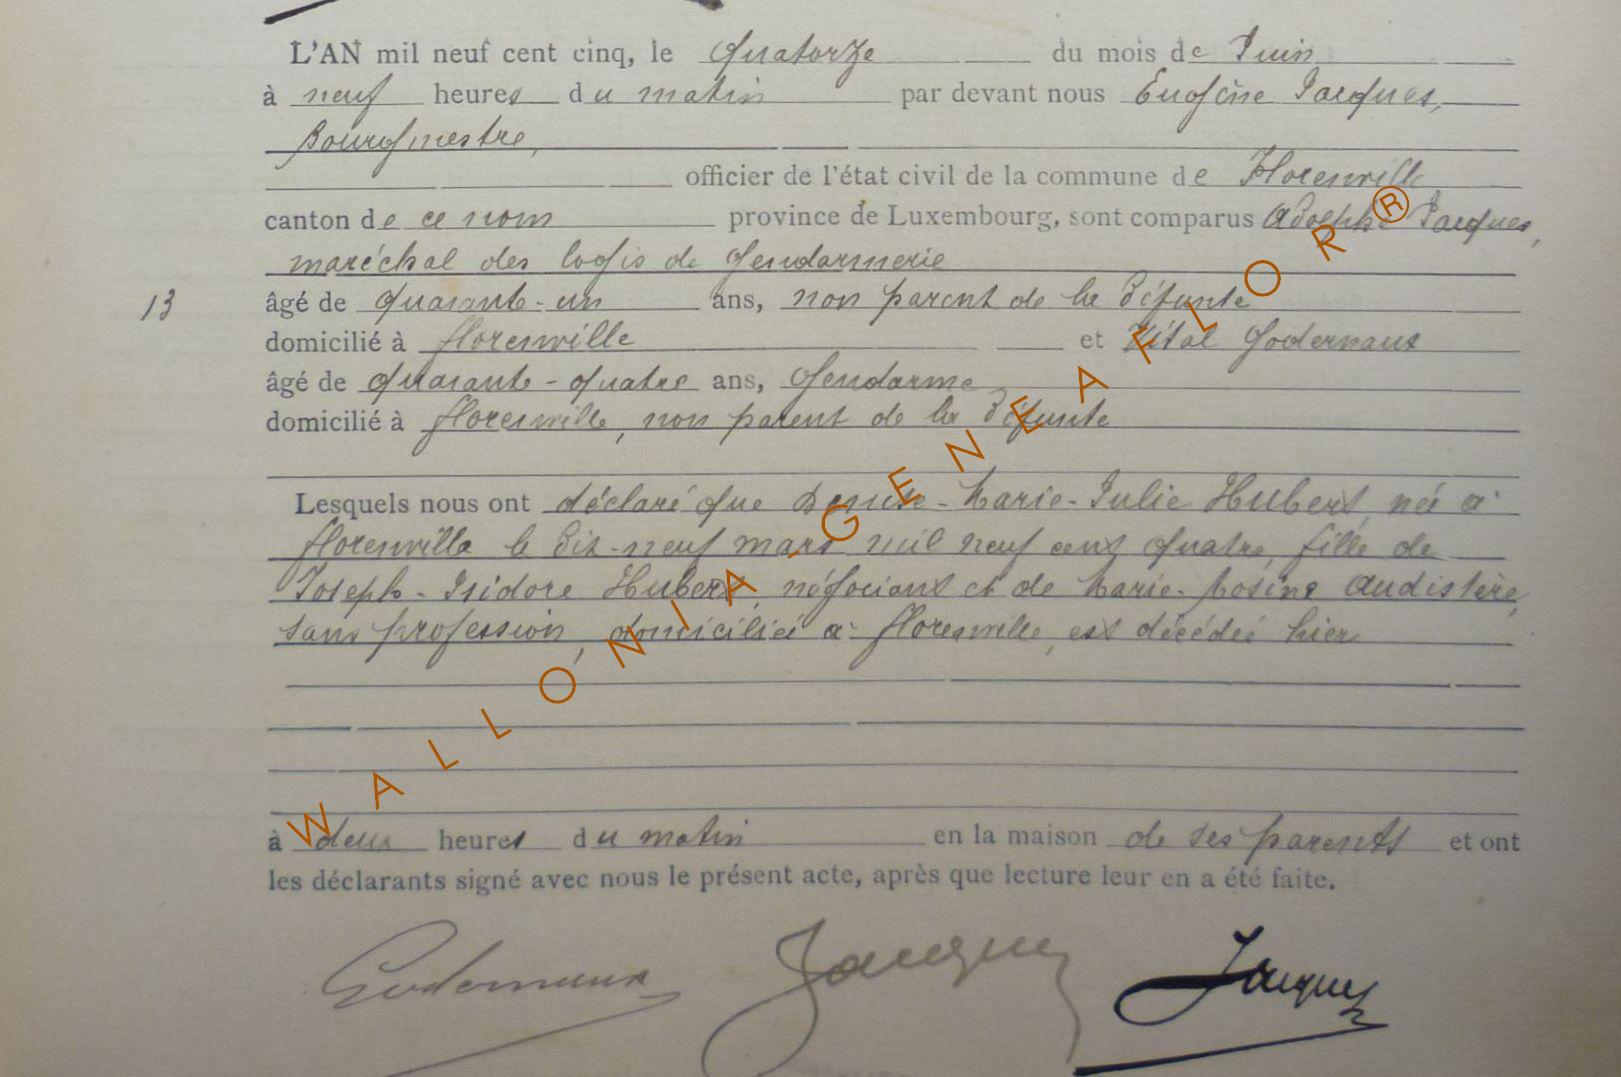 L'AN mil neuf cent cinq, le quatorze du mois de Juin
à neuf heures du matin par devant nous Eugène Jacques,
Bourgmestre,
officier de l'état civil de la commune de Florenville
canton de ce nom province de Luxembourg, sont comparus Adolphe Jacques,
maréchal des logis de gendarmerie
13 âgé de quarante-un ans, non parent de la défunte
domicilié à florenville et Vital Godernaux
âgé de quarante-quatre ans, gendarme
domicilié à florenville, non parent de la défunte
Lesquels nous ont déclaré que Denise-Marie-Julie Hubert née à
florenville le dix-neuf mars mil neuf cent quatre, fille de
Joseph-Isidore Hubert, négociant et de Marie-Rosine Audistère,
sans profession, domiciliés à florenville, est décédée hier
à deux heures du matin en la maison de ses parents et ont
les déclarants signé avec nous le présent acte, après que lecture leur en a été faite.
Godernaux Jacques Jacques
WALLONIA-GENEAFLOR®